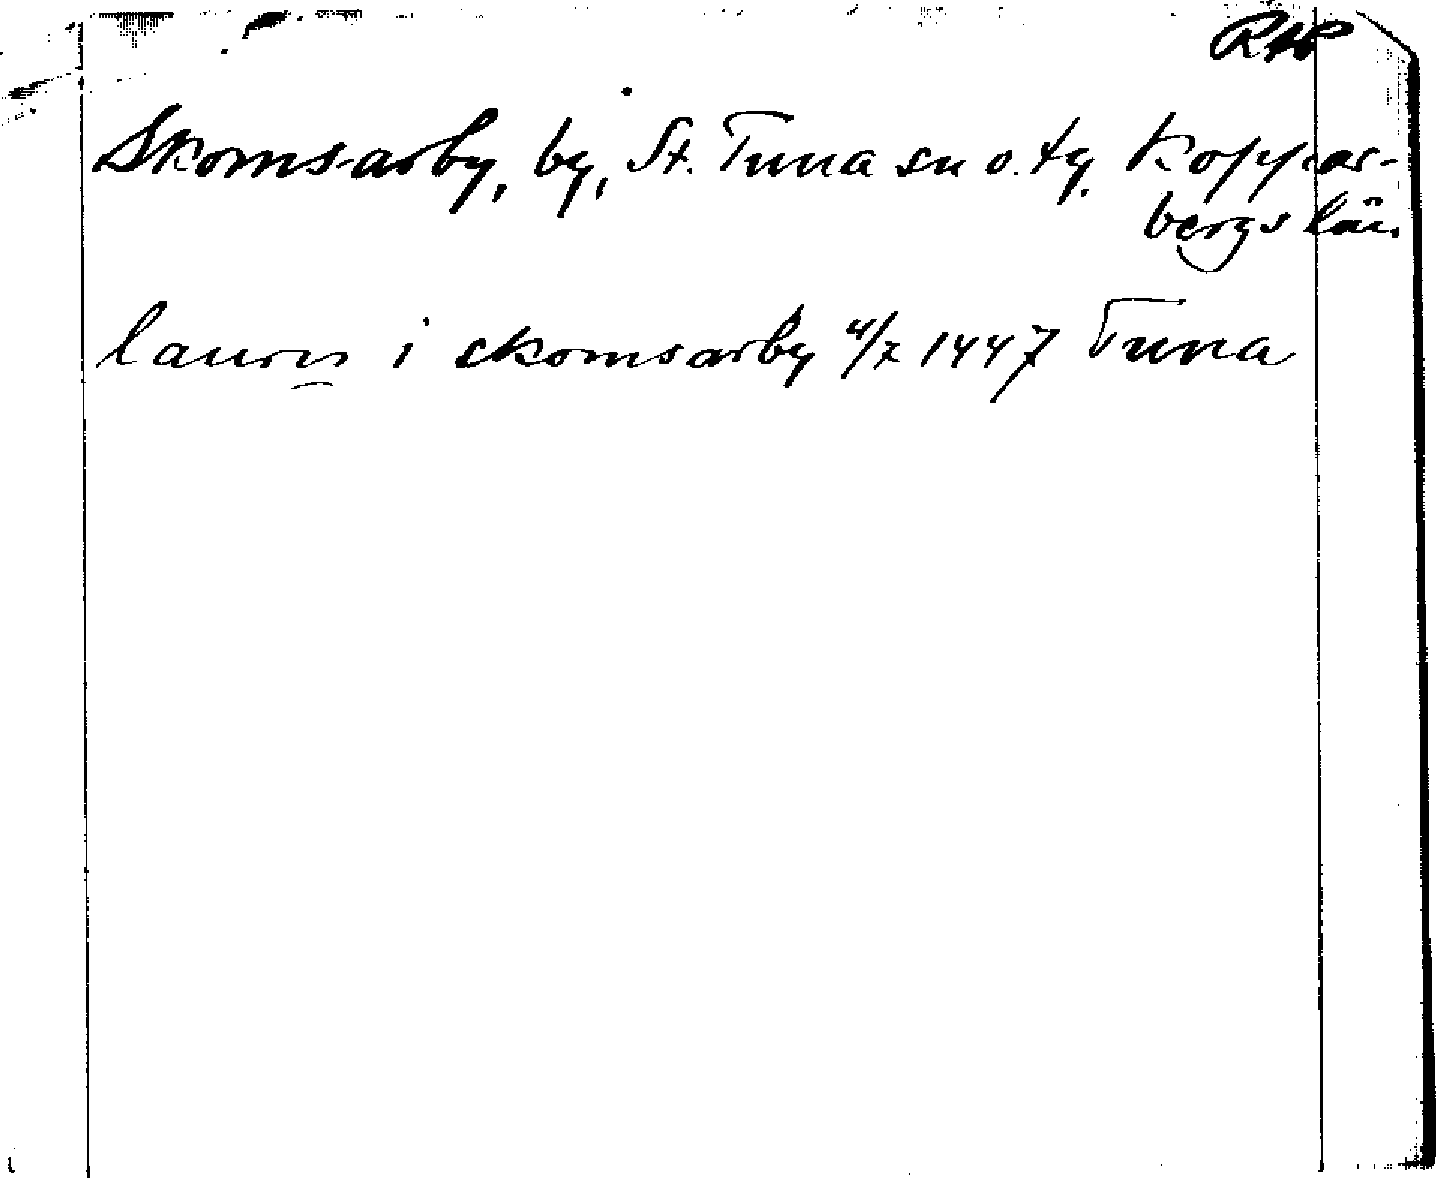 RAP
Skomsarby, by, St. Tuna sn o. tg. Koppar-
bergs län.
lauris i skomsarby 4/7 1447 Tuna